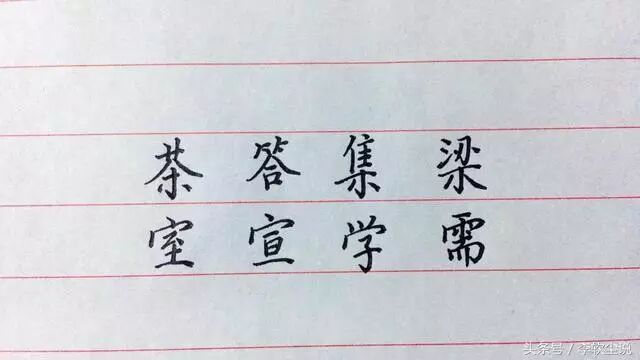 茶答集梁
室宣学需
头条号/李软尘说